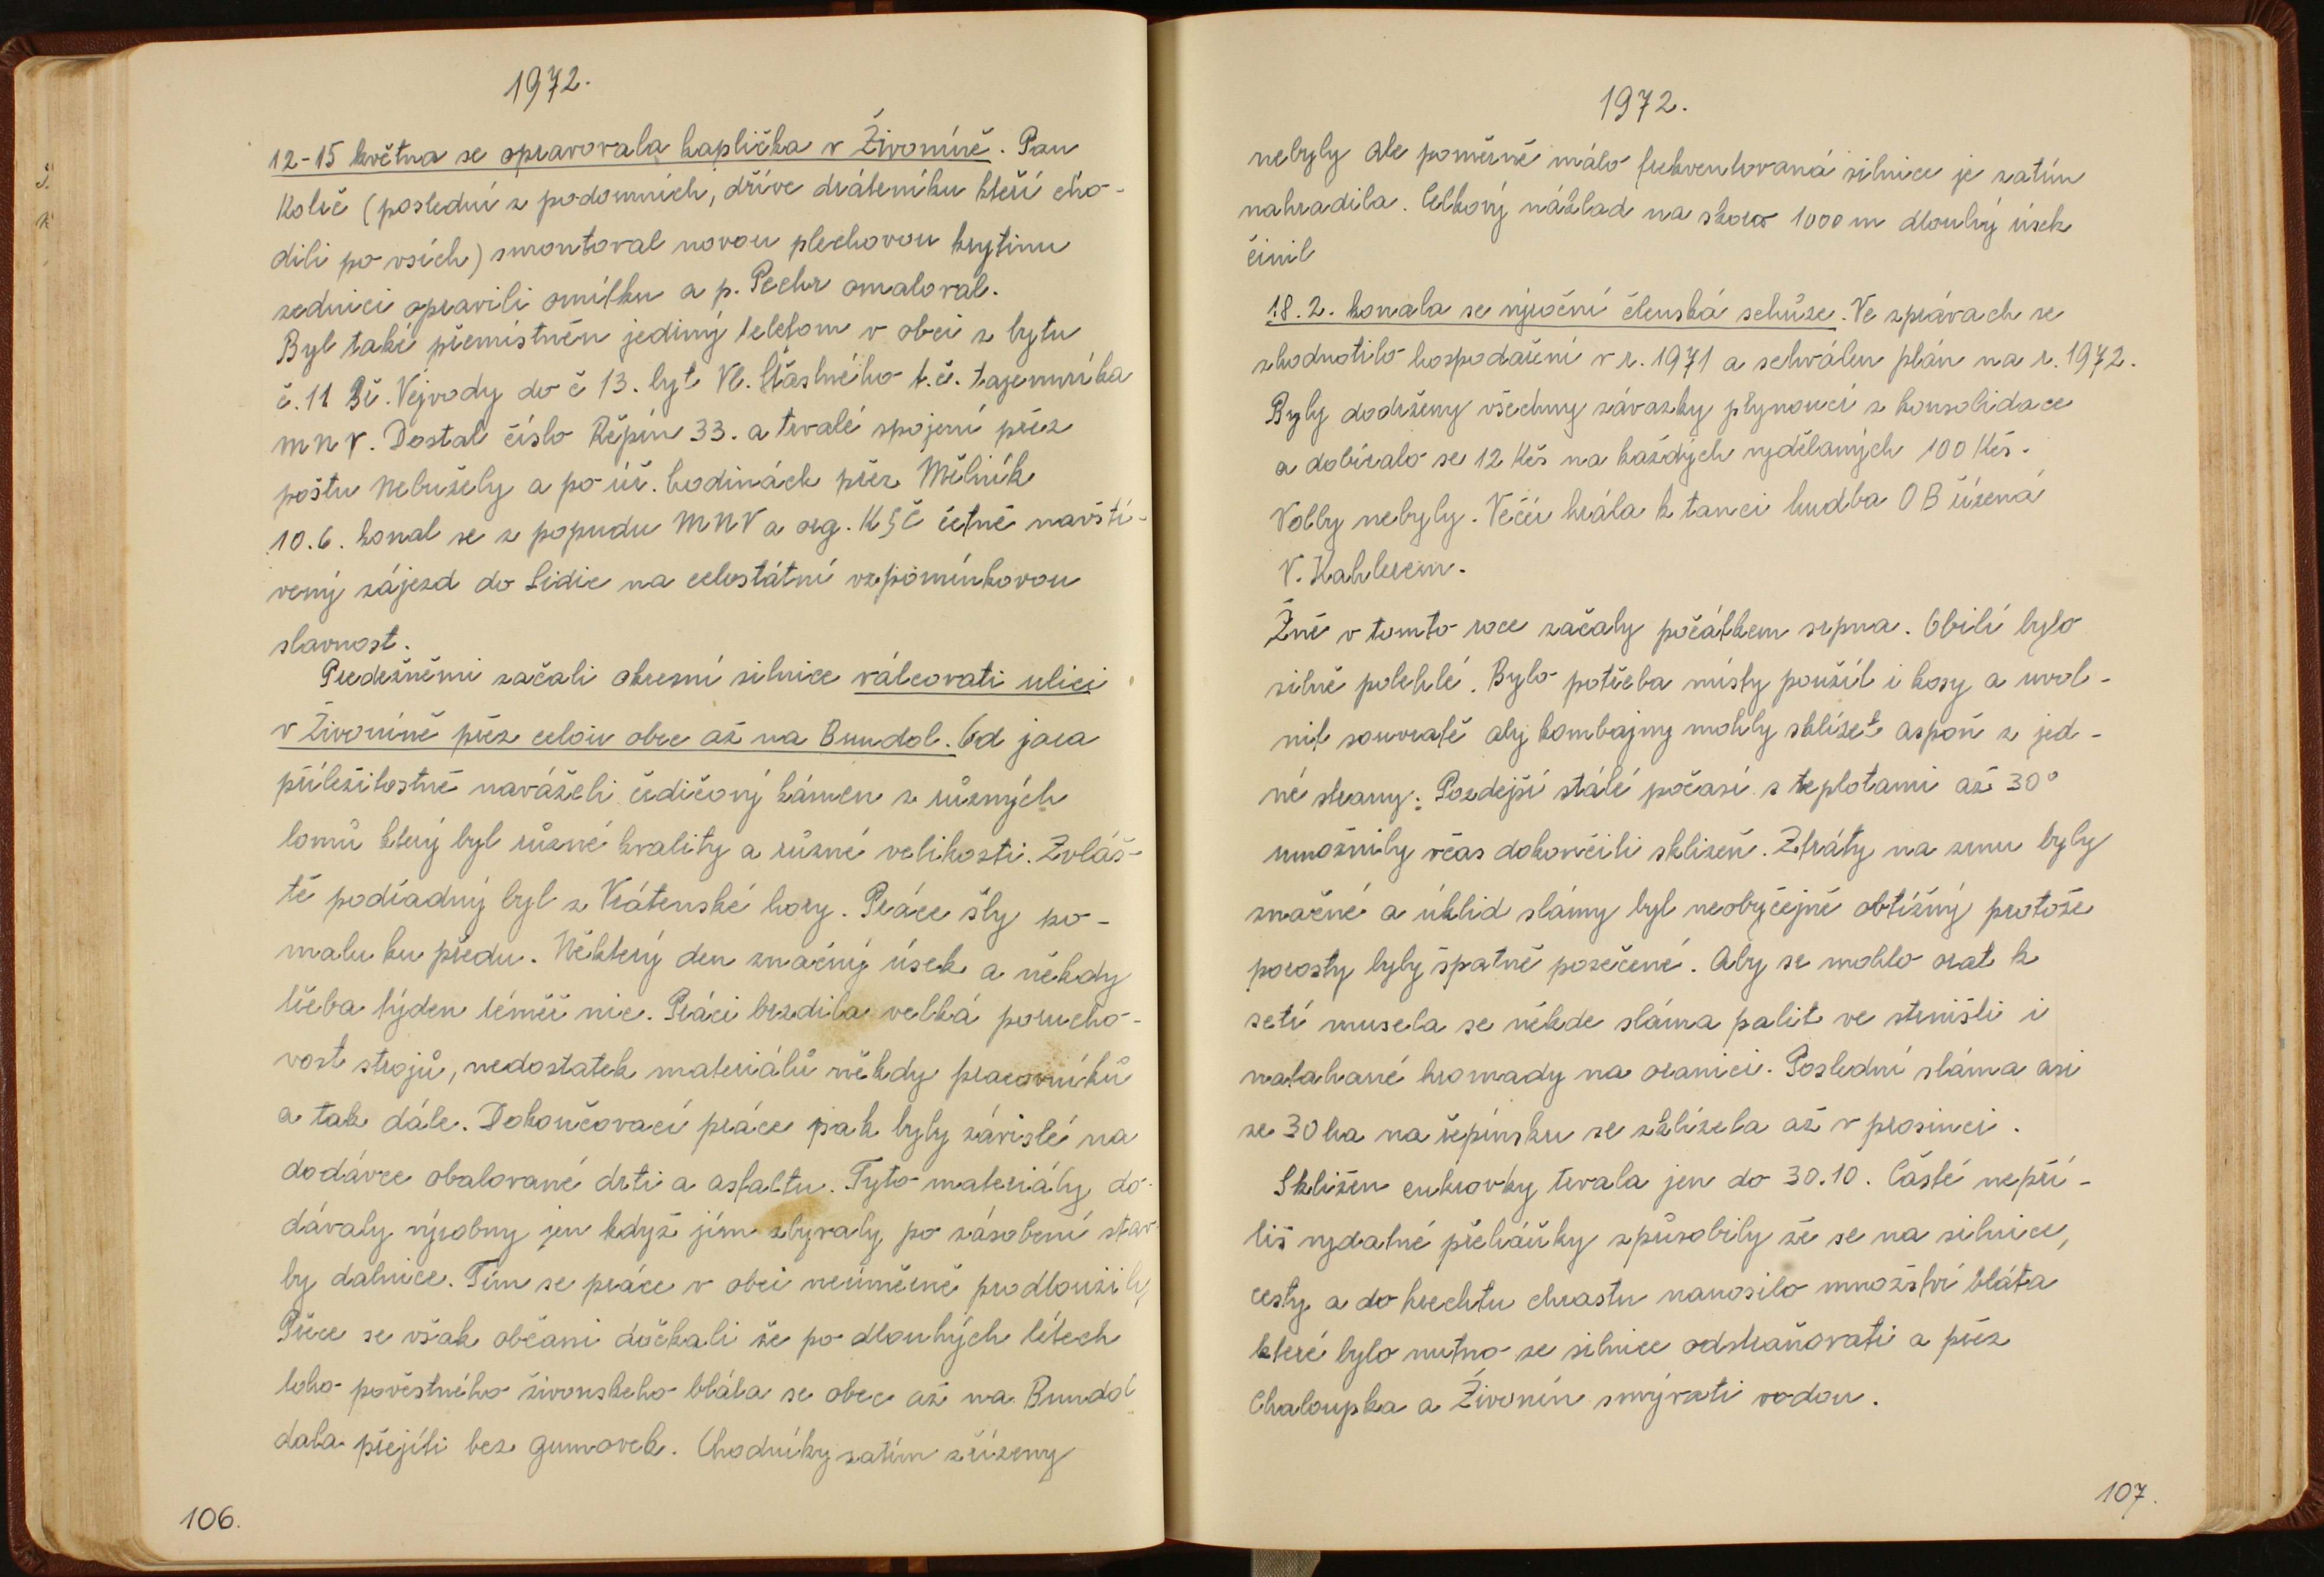 1972.
12-15 května se opravovala kaplička v Živoníně. Pan
Količ (poslední z podomních, dříve dráteníku kteří cho-
dili po vsích) smontoval novou plechovou krytinu
zedníci opravili omítku a p. Pechr omaloval.
Byl také přemístněn jediný telefom v obci z bytu
č. 11 Vejvody do č 13. byt Vl. Šťastného t.č. tajemníka
MNV. Dostal číslo Řepín 33. a trvalé spojení přez
poštu Nebužely a po úř. hodinách přez Mělník
10.6. konal se z popudu MNV a org. KSČ četně navští-
vený zájezd do Lidic na celostátní vzpomínkovou
slavnost.
Předežněmi začali okresní silnice válcovati ulici
v Živoníně přez celou obec až na Bundol. Od jara
příležitostně naváželi čedičový kámen z různých
lomů který byl různé kvality a různé velikosti. Zvláš-
tě podřadný byl z Vrátenské hory. Práce šly po-
malu ku předu. Některý den značný úsek a někdy
třeba týden téměř nic. Práci brzdila velká porucho-
vost strojů, nedostatek materiálů někdy pracovníků
a tak dále. Dokončovací práce pak byly závislé na
dodávce obalované drti a asfaltu. Tyto materiály do-
dávaly výrobny jen když jím zbyvaly po zásobení stav
by dalnice. Tím se práce v obci neúměrně prodloužily,
Přece se však občani dočkali že po dlouhých létech
toho pověstného živonskeho bláta se obec až na Bundol
dala přejíti bez gumovek. Chodníky zatím zřízeny
106.
1972.
nebyly ale poměrně málo frekventovaná silnice je zatím
nahradila. Celkový náklad na skoro 1000 m dlouhý úsek
činil
18.2. konala se výroční členská schůze. Ve zprávach se
zhodnotilo hospodaření v r. 1971 a schválen plán na r. 1972.
Byly dodrženy všechny závazky plynoucí z konsolidace
a dobíralo se 12 Kčs na každých vydělaných 100 Kčs.
Volby nebyly. Večer hrála k tanci hudba OB řízená
V. Kahlerem.
Žně v tomto roce začaly počátkem srpna. Obilí bylo
silně polehlé. Bylo potřeba místy použít i kosy a uvol-
nit souvratě aby kombajny mohly sklízet aspoň z jed-
né strany. Pozdejší stálé počasí s teplotami až 30°
umožnily včas dokončiti sklizeň. Ztráty na zrnu byly
značné a úklid slámy byl neobyčejně obtížný protože
porosty byly špatně posečené. Aby se mohlo orat k
setí musela se někde sláma palit ve strništi i
natahané hromady na oranici. Poslední sláma asi
ze 30 ha na řepínsku se sklízela až v prosinci.
Sklizen cukrovky trvala jen do 30.10. Časté nepří-
liš vydatné přeháňky způsobily že se na silnice,
cesty a do krechtu chrastu nanosilo množství bláta
které bylo nutno ze silnice odstraňovati a přez
Chaloupka a Živonín smývati vodou.
107.